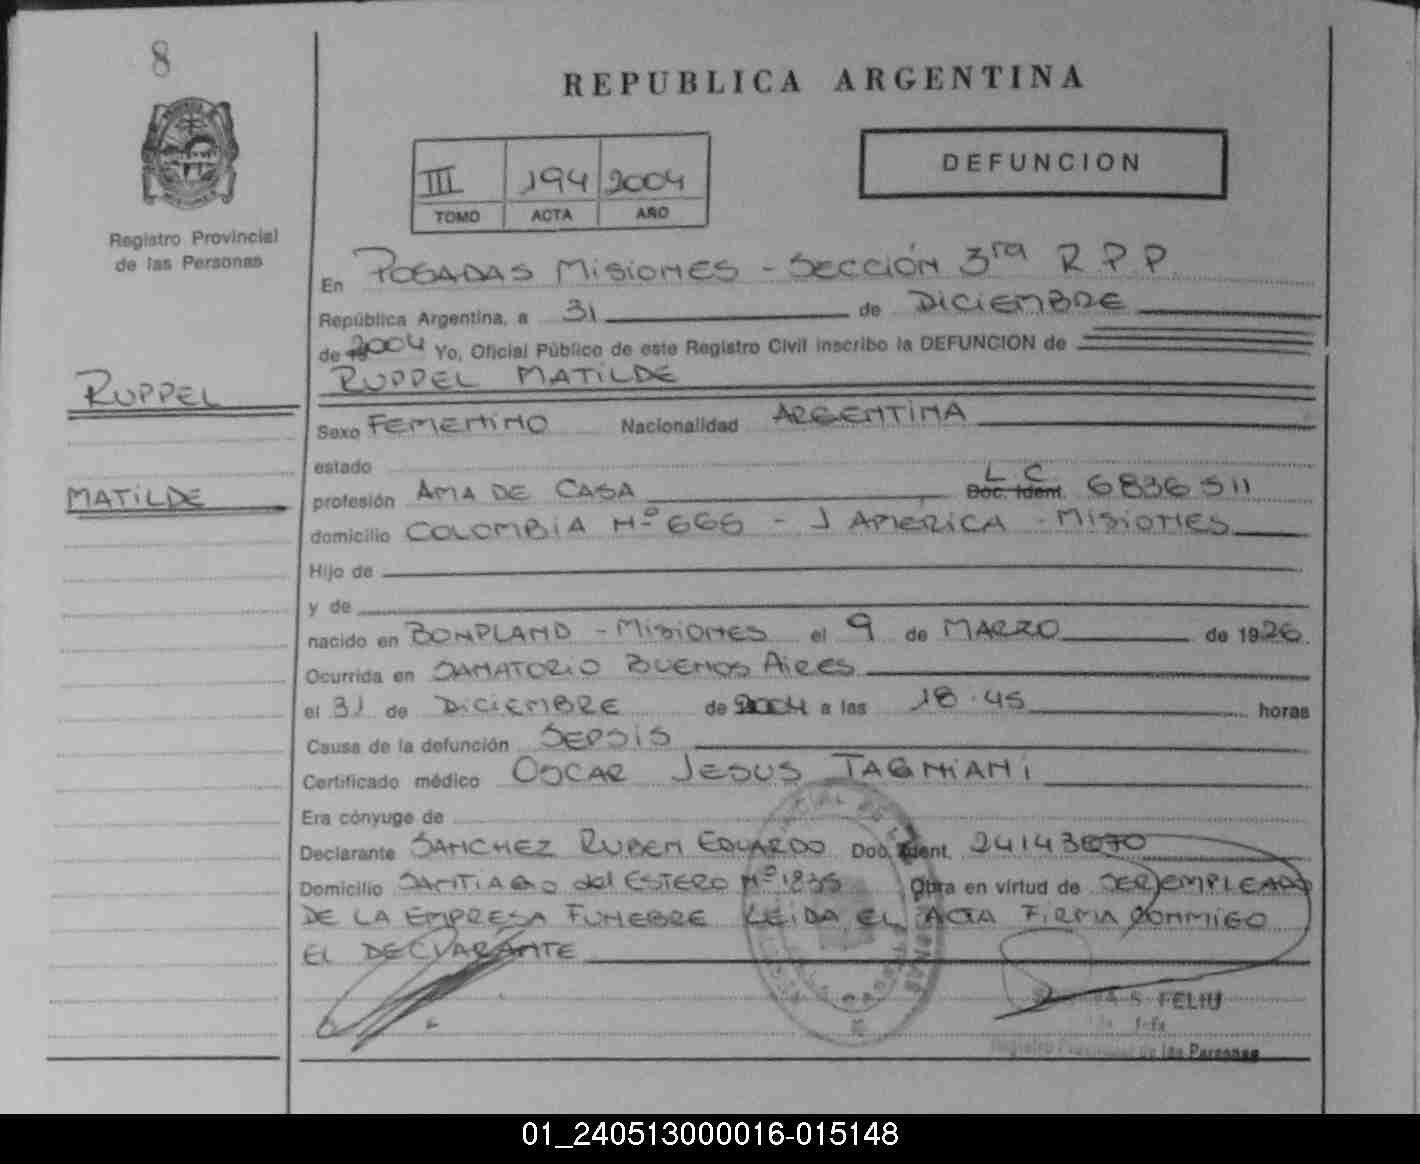 8
REPUBLICA ARGENTINA
DEFUNCION
III 194 2004
TOMO ACTA AÑO
Registro Provincial
de las Personas
En POSADAS MISIONES - SECCIÓN 3ra R.P.P.
República Argentina, a 31 de DICIEMBRE
de 2004 Yo, Oficial Público de este Registro Civil inscribo la DEFUNCION de
RUPPEL
RUPPEL MATILDE
Sexo FEMENINO Nacionalidad ARGENTINA
estado
MATILDE
profesión AMA DE CASA L C Doc. Ident. 6836511
domicilio COLOMBIA Nº 666 - J AMERICA - MISIONES
Hijo de
y de
nacido en BONPLAND - MISIONES el 9 de MARZO de 1926
Ocurrida en SANATORIO BUENOS AIRES
el 31 de DICIEMBRE de 2004 a las 18.45 horas
Causa de la defunción SEPSIS
Certificado médico OSCAR JESUS TAGNIANI
Era cónyuge de
Declarante SANCHEZ RUBEN EDUARDO Doc. Ident. 24143070
Domicilio SANTIAGO del ESTERO Nº 1835 Obra en virtud de SER EMPLEADO
DE LA EMPRESA FUNEBRE LEIDA EL ACTA FIRMA CONMIGO
EL DECLARANTE
S. FELIU
Jefa
Registro Provincial de las Personas
01_240513000016-015148